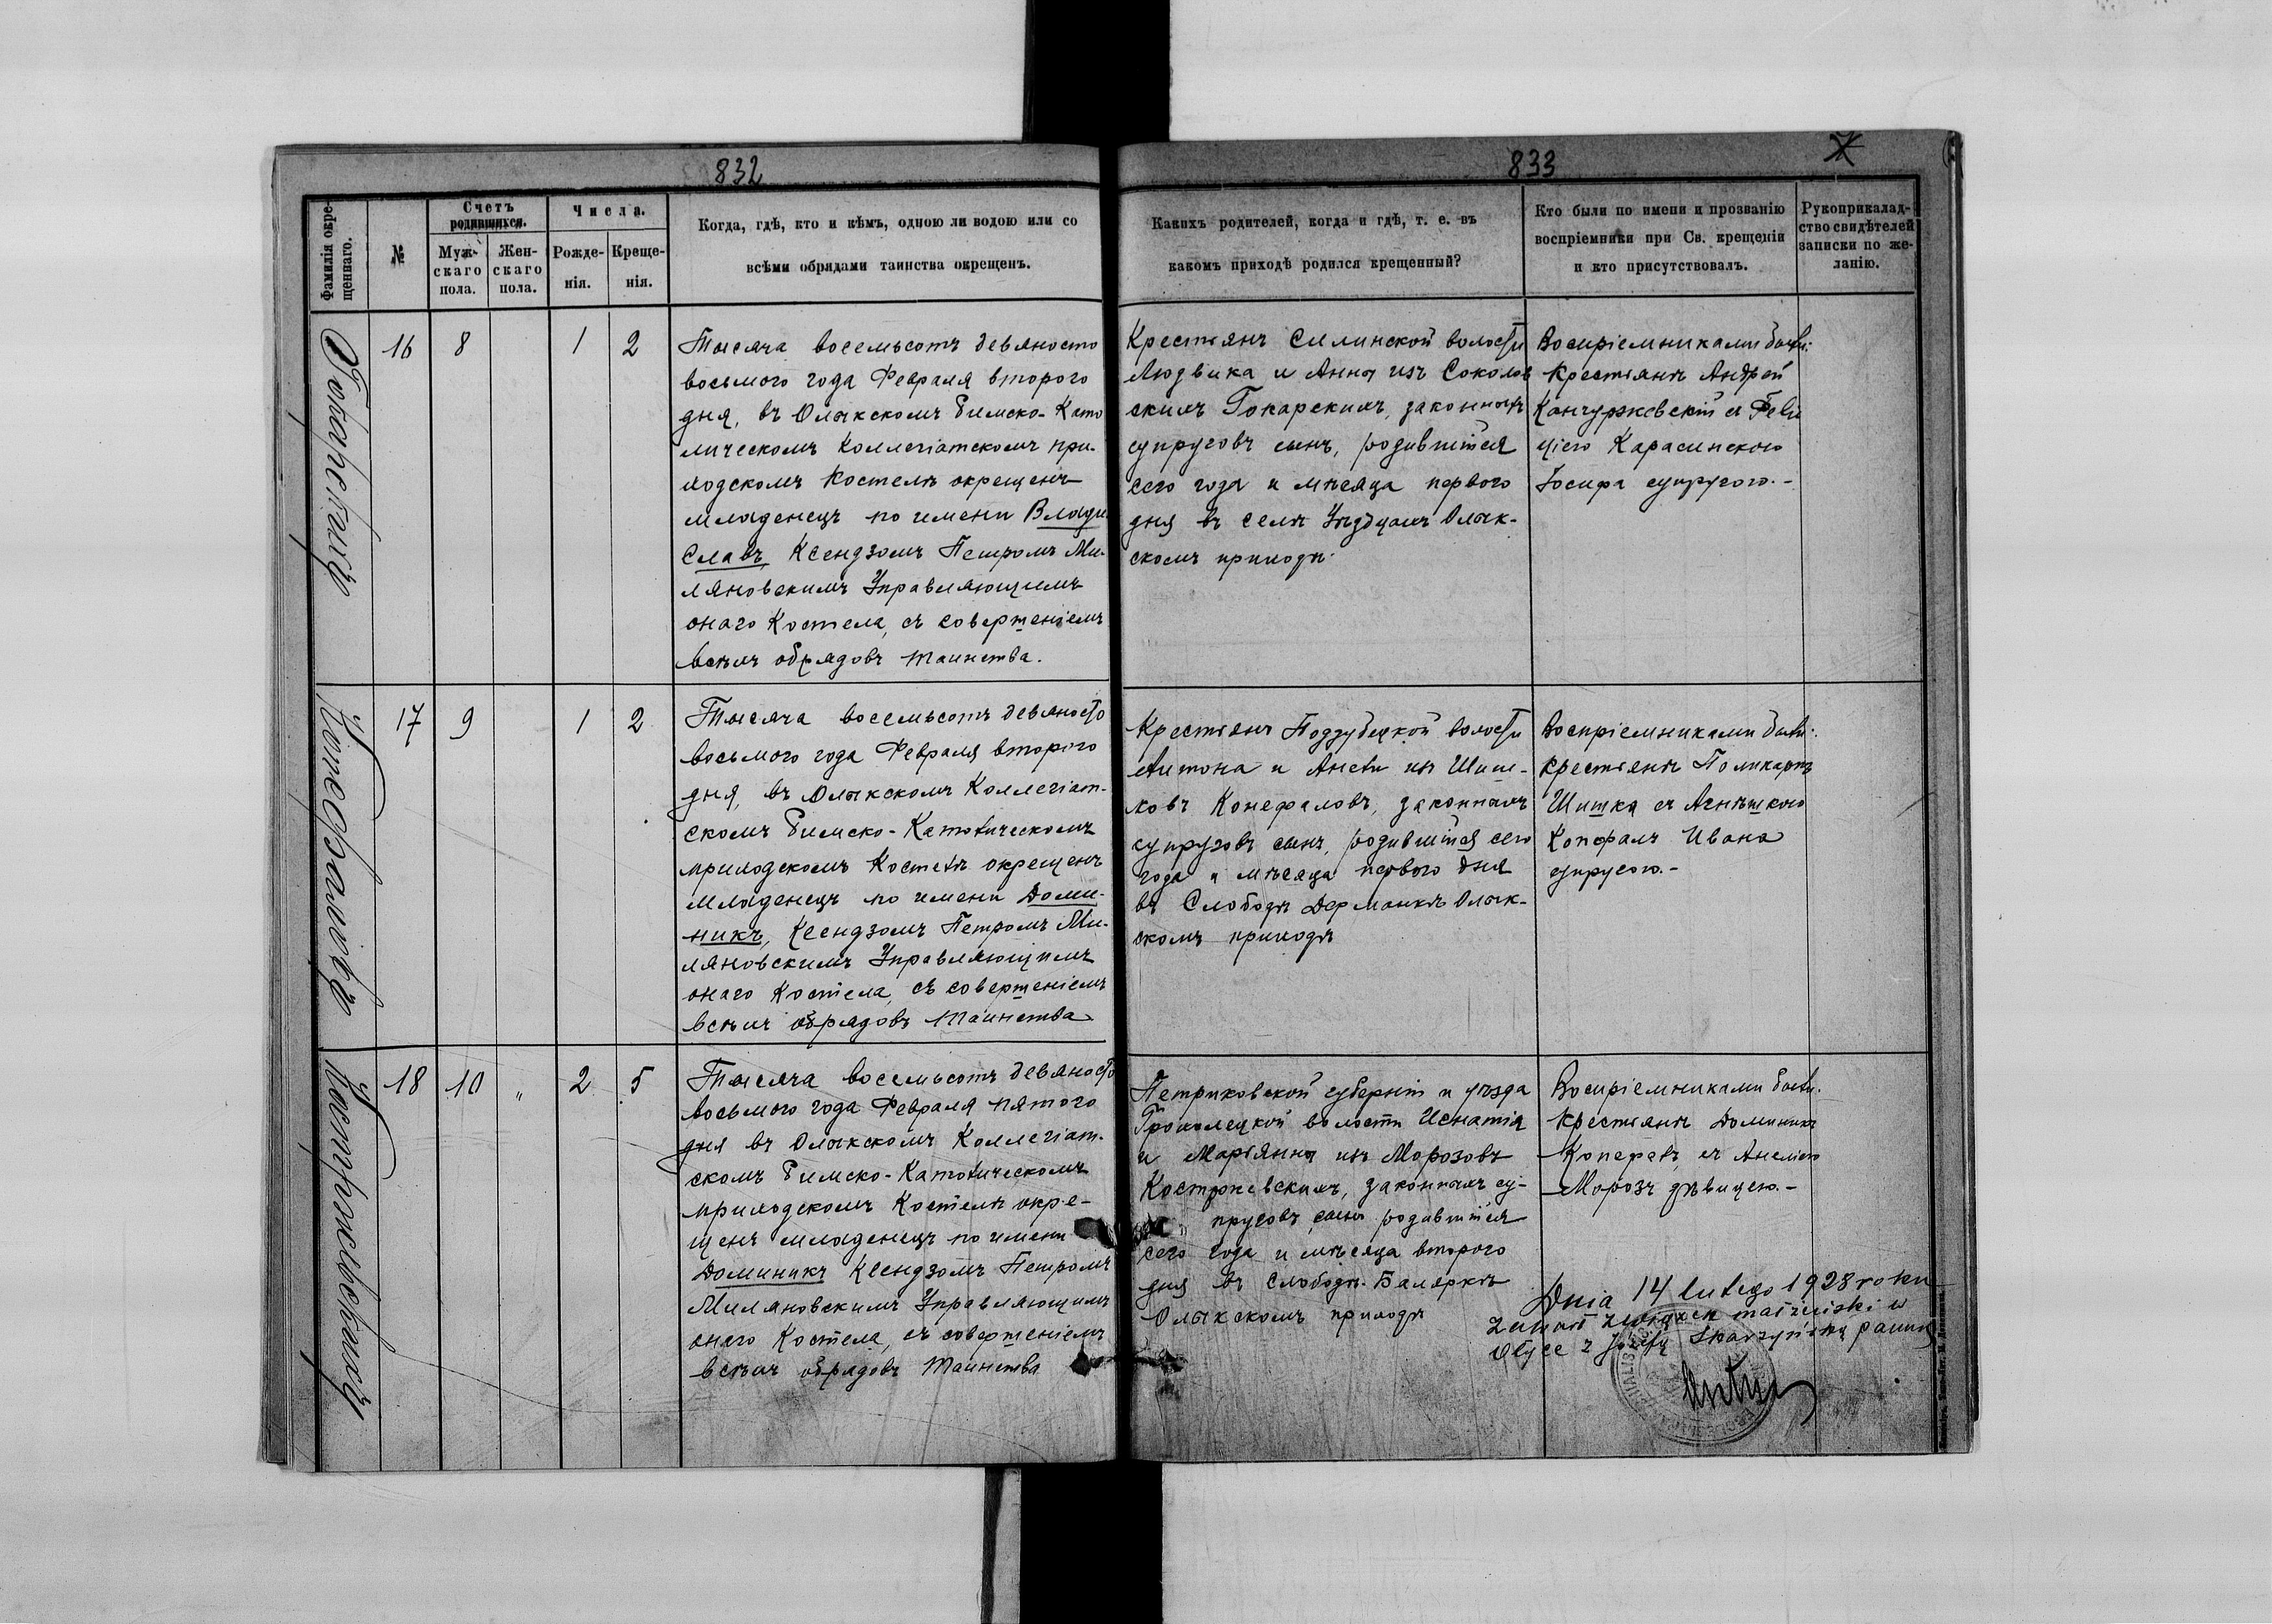 832
Фамилія окре-
щеннаго.
№
Счетъ
родившихся.
Муж-
скаго
пола.
Жен-
скаго
пола.
Числа.
Рожде-
нія.
Креще-
нія.
Когда, гдѣ, кто и кѣмъ, одною ли водою или со
всѣми обрядами таинства окрещенъ.
Токарскихъ
16 8 1 2
Тысяча восемьсотъ девяносто
восьмого года Февраля второго
дня, въ Олыкскомъ Римско-Като
лическомъ Коллегіатскомъ при-
ходскомъ Костелѣ окрещенъ
младенецъ по имени Влади
славъ, Ксендзомъ Петромъ Ми-
ляновскимъ Управляющимъ
онаго Костела, съ совершеніемъ
всѣхъ обрядовъ таинства.
Конефаловъ
17 9 1 2
Тысяча восемьсотъ девяносто
восьмого года Февраля второго
дня, въ Олыкскомъ Коллегіат-
скомъ Римско-Католическомъ
приходскомъ Костелѣ окрещенъ
младенецъ по имени Доми-
никъ, Ксендзомъ Петромъ Ми-
ляновскимъ Управляющимъ
онаго Костела, съ совершеніемъ
всѣхъ обрядовъ таинства
Костржевскихъ
18 10 " 2 5
Тысяча восемьсотъ девяносто
восьмого года Февраля пятого
дня въ Олыкскомъ Коллегіат-
скомъ Римско-Католическомъ
приходскомъ Костелѣ окре-
щенъ младенецъ по имени
Доминикъ Ксендзомъ Петромъ
Миляновскимъ Управляющимъ
онаго Костела, съ совершеніемъ
всѣхъ обрядовъ таинства
833
Какихъ родителей, когда и гдѣ, т. е. въ
какомъ приходѣ родился крещенный?
Кто были по имени и прозванію
воспріемники при Св. крещеніи
и кто присутствовалъ.
Рукоприкалад-
ство свидѣтелей
записки по же-
ланію.
Крестьянъ Силинской волости
Людвика и Анны изъ Соколов
скихъ Токарскихъ, законныхъ
супруговъ сынъ, родившійся
сего года и мѣсяца первого
дня въ селѣ Олык-
скомъ приходѣ.
Воспріемниками были:
Крестьянъ Андрей
съ Фели
ціею Карасинскою
Іосифа супругою.-
Крестьянъ Поддубецкой волости
Антона и Анели изъ Шиш-
ковъ Конефаловъ, законныхъ
супруговъ сынъ, родившійся сего
года и мѣсяца первого дня
въ Слободѣ Дерманкѣ Олык-
скомъ приходѣ
Воспріемниками были:
Крестьянъ Поликарпъ
Шишка съ Агнѣшкою
Ивана
супругою.-
Петриковской губерніи и уѣзда
волости Игнатія
и Маріянны изъ Морозовъ
Костржевскихъ, законныхъ су-
" пруговъ сынъ родившійся
сего года и мѣсяца второго
дня въ Слободѣ Баляркѣ
Олыкскомъ приходѣ
Воспріемниками были.
Крестьянъ Доминикъ
съ Анеліею
Морозъ дѣвицею.-
Dnia 14 lutego 1928 roku
zawarł związek małżeński w
Ołyce z Józefą Skarzyńską panną